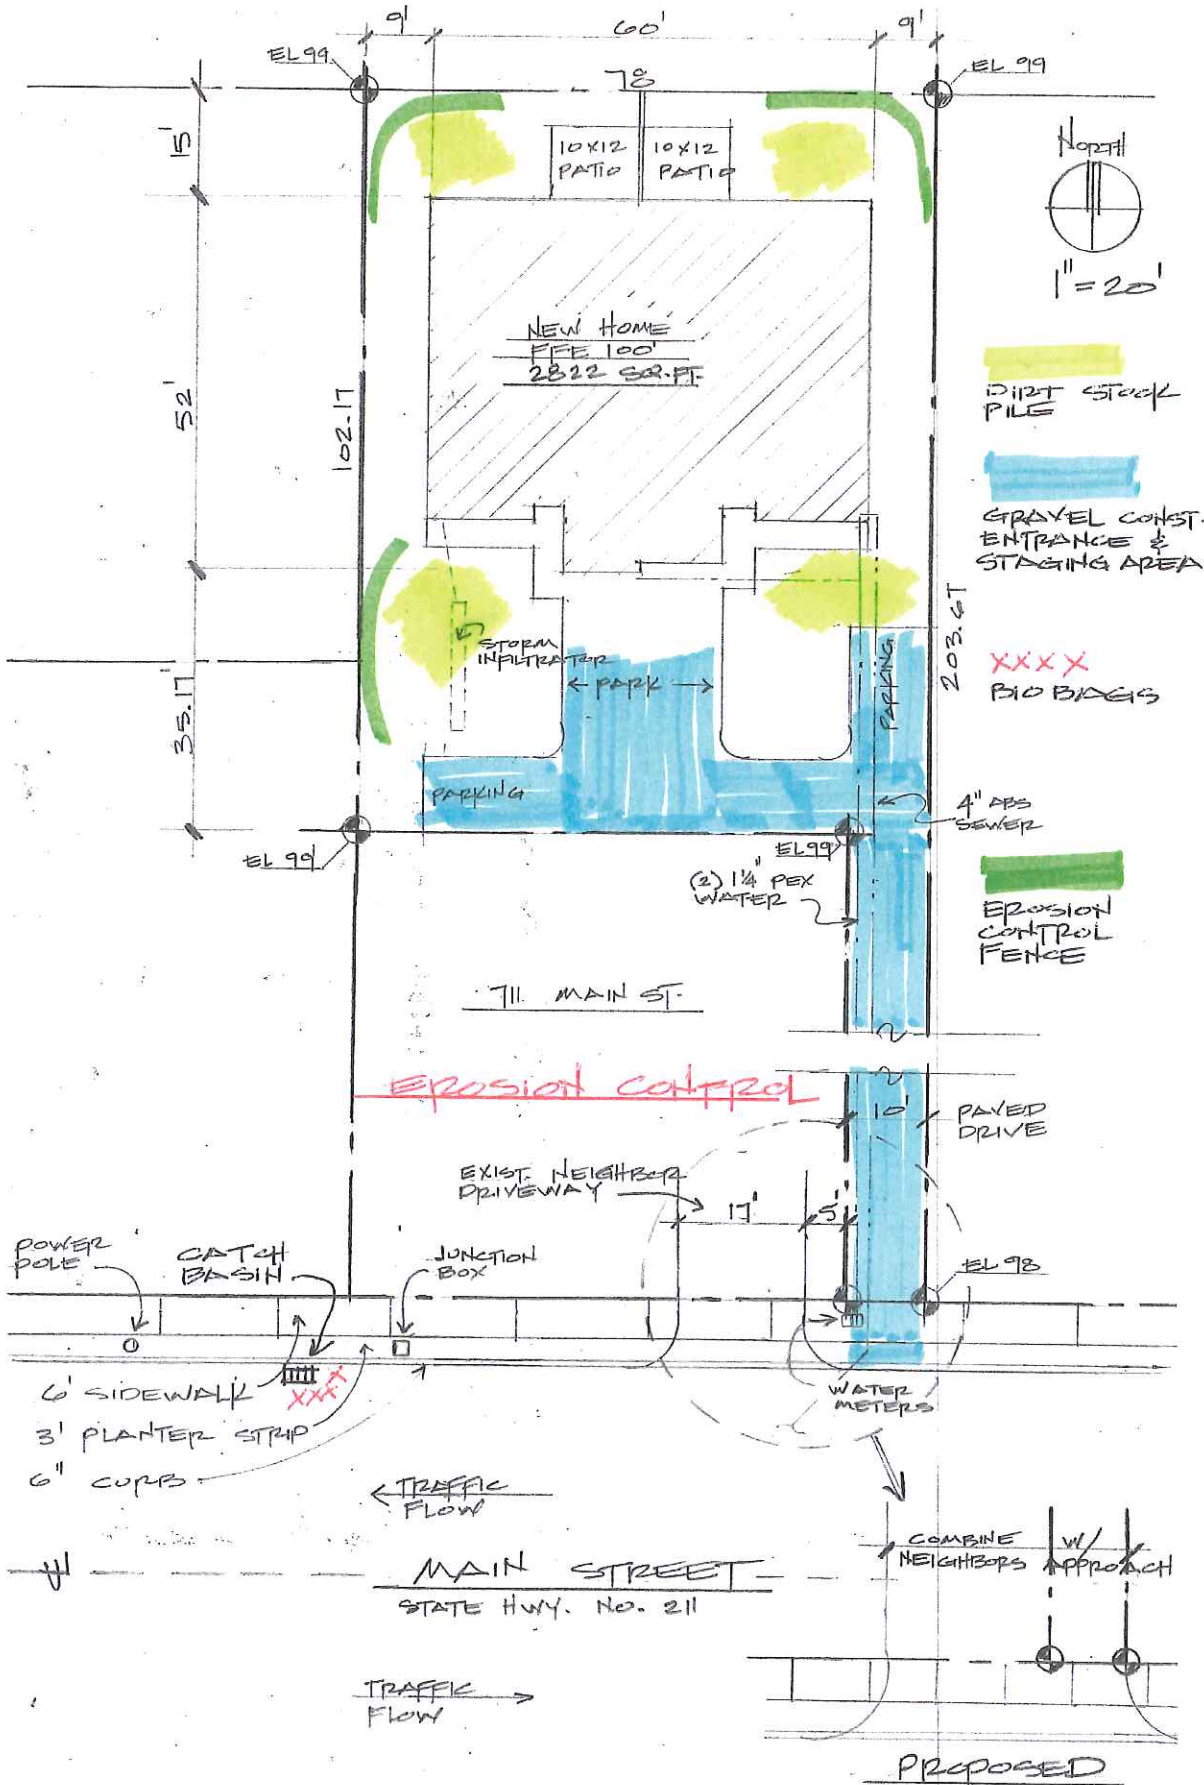 9' 60' 9'
EL 99 78 EL 99
15'
10x12
PATIO
10x12
PATIO
NORTH
1" = 20'
NEW HOME
FFE 100'
2822 SQ.FT.
52'
102.17
DIRT STOCK
PILE
GRAVEL CONST.
ENTRANCE &
STAGING AREA
203.67
STORM
INFILTRATOR
← PARK →
PARKING
XXXX
BIO BAGS
35.17'
PARKING
4" ABS
SEWER
EL 99'
EL 99'
(2) 1¼" PEX
WATER
EROSION
CONTROL
FENCE
711 MAIN ST.
EROSION CONTROL
10'
PAVED
DRIVE
EXIST. NEIGHBOR
DRIVEWAY
17' 5'
POWER
POLE
CATCH
BASIN
JUNCTION
BOX
EL 98
XXXX
6' SIDEWALK
3' PLANTER STRIP
6" CURB
WATER
METERS
TRAFFIC
FLOW
COMBINE W/
NEIGHBORS APPROACH
MAIN STREET
STATE HWY. NO. 211
TRAFFIC
FLOW
PROPOSED